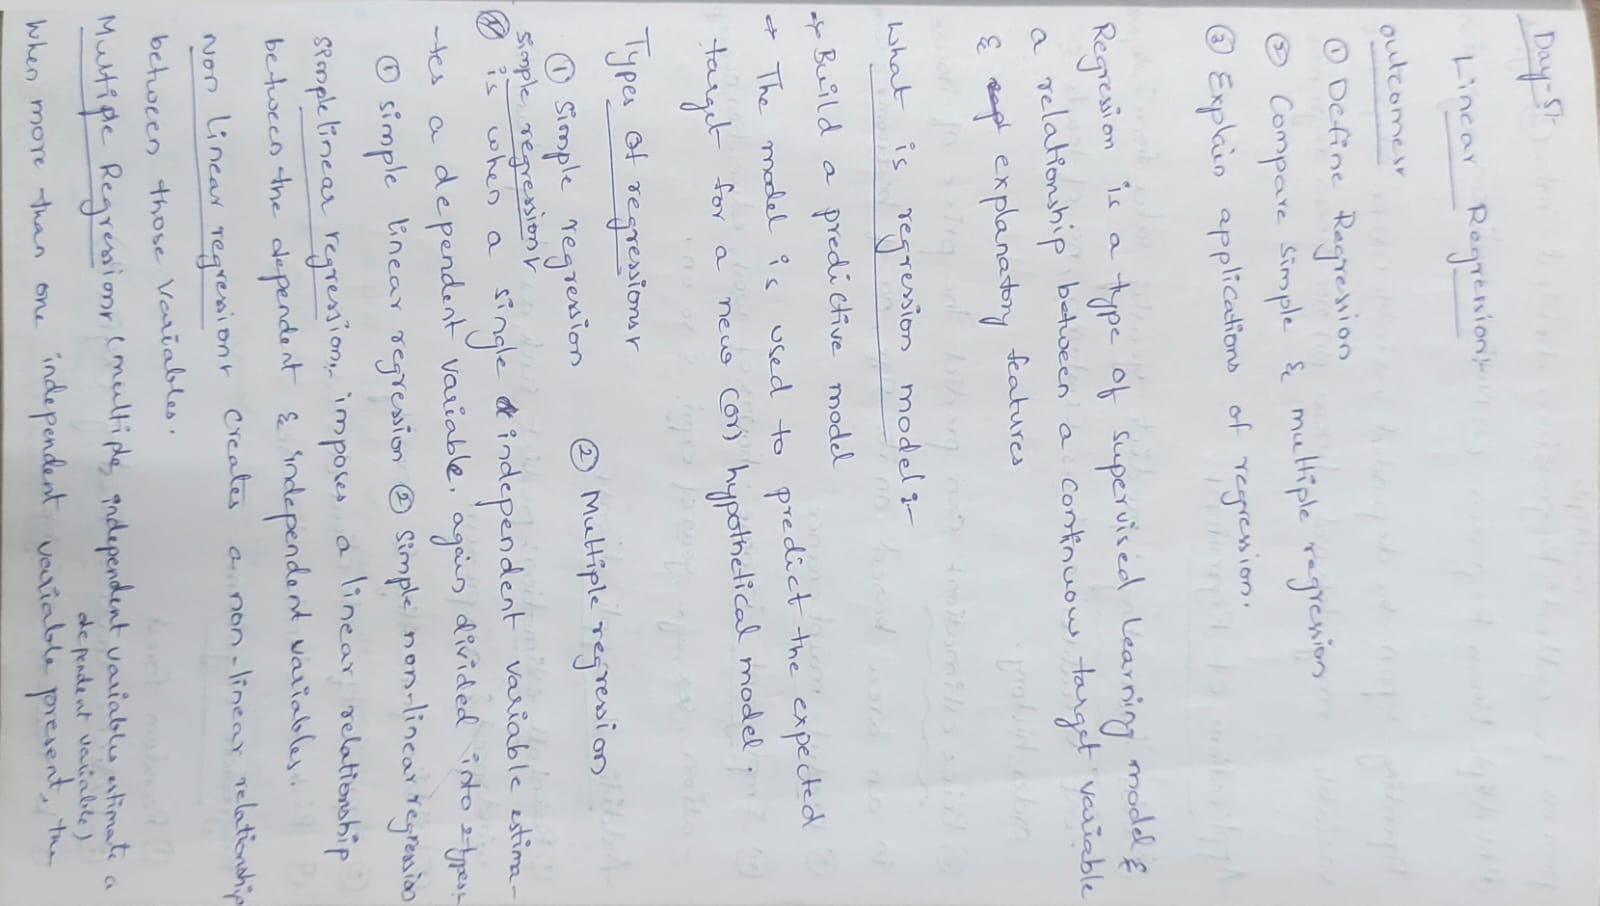 Day-5:-
Linear Regression:-
outcomes:-
① Define Regression
② Compare Simple & multiple regression
③ Explain applications of regression.
Regression is a type of supervised Learning model &
a relationship between a continuous target variable
& explanatory features
What is regression model:-
→ Build a predictive model
→ The model is used to predict the expected
target for a new (or) hypothetical model.
Types of regressions:-
① Simple regression ② Multiple regression
Simple regression:-
is when a single independent variable estima-
-tes a dependent variable. again divided into 2 types:-
① simple linear regression ② Simple non-linear regression
Simple linear regression:- imposes a linear relationship
between the dependent & independent variables.
Non linear regression:- Creates a non-linear relationship
between those variables.
Multiple Regression:- (multiple independent variables estimate a
dependent variable)
When more than one independent variable present, the